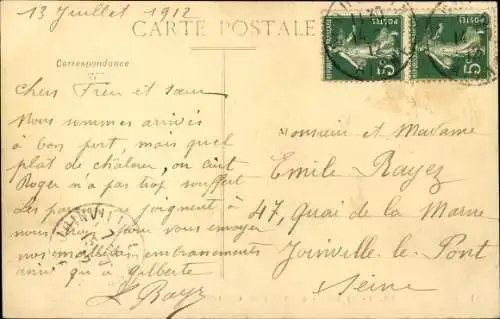 13 Juillet 1912
CARTE POSTALE
Correspondance
Chers Frère et sœur
Nous sommes arrivés
à bon port, mais quel
plat de chaleur, on cuit
Roger n'a pas trop souffert
Les parents se joignent à
nous pour vous envoyer
nos meilleurs embrassements
ainsi qu'à Gilberte
L Rayez
Monsieur et Madame
Emile Rayez
47, Quai de la Marne
Joinville-le-Pont
Seine
POSTES
5c
POSTES
5c
JOINVILLE